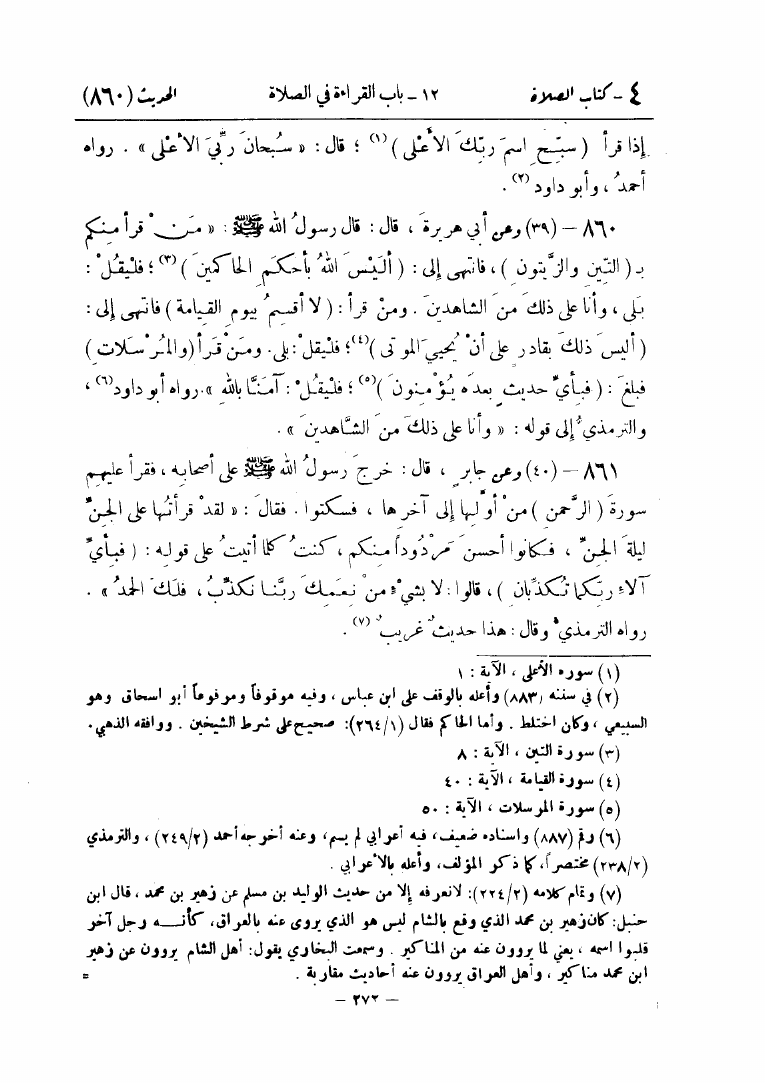 ٤ - كتاب الصلاة ١٢ - باب القراءة في الصلاة الحديث (٨٦٠)
إذا قرأ ( سبّح اسمَ ربّكَ الأعْلى )(١) ؛ قال : « سُبحانَ ربِّيَ الأعْلى » . رواه
أحمدُ ، وأبو داود(٢) .
٨٦٠ - (٣٩) وعن أبي هريرةَ ، قال : قال رسولُ الله ﷺ : « مَنْ قرأ منِكم
بـ ( التّينِ والزَّيتونِ ) ، فانتهى إلى : ( أليْسَ اللهُ بأحكَمِ الحاكمينَ )(٣) ؛ فليقُلْ :
بَلى ، وأنا على ذلكَ منَ الشاهدينَ . ومنْ قرأ : ( لا أقسِمُ بيومِ القيامة ) فانتهى إلى :
( أليسَ ذلكَ بقادرٍ على أنْ يُحييَ الموتى )(٤) ؛ فليقلْ : بلى . ومَنْ قرَأ (والمُرْسَلاتِ)
فبلغَ : ( فبأيِّ حديثٍ بعدَه يُؤْمِنونَ )(٥) ؛ فليقُلْ : آمَنَّا باللهِ ». رواه أبو داود(٦) ،
والترمذيُّ إلى قوله : « وأنا على ذلكَ منَ الشَّاهدينَ » .
٨٦١ - (٤٠) وعن جابرٍ ، قال : خرجَ رسولُ الله ﷺ على أصحابِه ، فقرأ عليهم
سورةَ ( الرَّحمنِ ) منْ أوَّلِها إلى آخرِها ، فسكتوا . فقالَ : « لقدْ قرأتُها على الجنِّ
ليلةَ الجنِّ ، فكانوا أحسنَ مَرْدُوداً منِكم ، كنتُ كلما أتيتُ على قولِه : ( فبأيِّ
آلاءِ ربّكما تُكذّبانِ ) ، قالوا : لا بشيْءٍ منْ نِعَمِكَ ربَّنا نكذِّبُ ، فلَكَ الحمدُ » .
رواه الترمذيُّ وقال : هذا حديثٌ غريبٌ(٧) .
(١) سورة الأعلى ، الآية : ١
(٢) في سننه (٨٨٣) وأعله بالوقف على ابن عباس ، وفيه موقوفاً وموفوعاً أبو اسحاق وهو
السبيعي ، وكان اختلط . وأما الحاكم فقال (٢٦٤/١): صحيح على شرط الشيخين . ووافقه الذهبي .
(٣) سورة التين ، الآية : ٨
(٤) سورة القيامة ، الآية : ٤٠
(٥) سورة المرسلات ، الآية : ٥٠
(٦) رقم (٨٨٧) واسناده ضعيف، فيه أعرابي لم يسم، وعنه أخرجه أحمد (٢٤٩/٢) ، والترمذي
(٢٣٨/٢) مختصراً، كما ذكر المؤلف، وأعله بالأعرابي .
(٧) وتمام كلامه (٢٢٤/٢): لانعرفه إلا من حديث الوليد بن مسلم عن زهير بن محمد ، قال ابن
حنبل: كان زهير بن محمد الذي وقع بالشام ليس هو الذي يروى عنه بالعراق، كأنـــه رجل آخر
قلبوا اسمه ، يعني لما يروون عنه من المناكير . وسمعت البخاري يقول: أهل الشام يروون عن زهير
ابن محمد مناكير ، وأهل العراق يروون عنه أحاديث مقاربة . =
- ٢٧٢ -